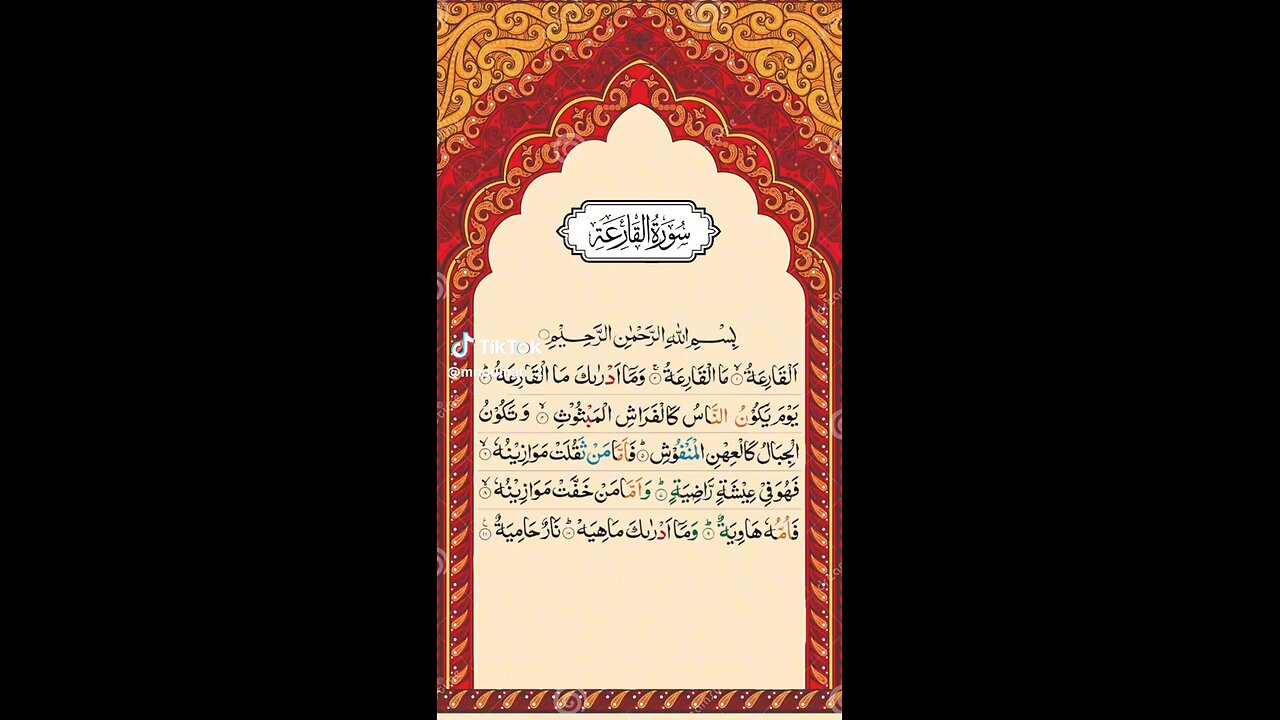 سُوۡرَةُ الۡقَارِعَةِ
بِسْمِ اللهِ الرَّحْمٰنِ الرَّحِيْمِ
TikTok
اَلْقَارِعَةُ ۙ﴿۱﴾ مَا الْقَارِعَةُ ۚ﴿۲﴾ وَمَاۤ اَدْرٰىكَ مَا الْقَارِعَةُ ؕ﴿۳﴾
يَوْمَ يَكُوْنُ النَّاسُ كَالْفَرَاشِ الْمَبْثُوْثِ ۙ﴿۴﴾ وَ تَكُوْنُ
الْجِبَالُ كَالْعِهْنِ الْمَنْفُوْشِ ؕ﴿۵﴾ فَاَمَّا مَنْ ثَقُلَتْ مَوَازِيْنُهٗ ۙ﴿۶﴾
فَهُوَ فِيْ عِيْشَةٍ رَّاضِيَةٍ ؕ﴿۷﴾ وَاَمَّا مَنْ خَفَّتْ مَوَازِيْنُهٗ ۙ﴿۸﴾
فَاُمُّهٗ هَاوِيَةٌ ؕ﴿۹﴾ وَمَاۤ اَدْرٰىكَ مَاهِيَهْ ؕ﴿۱۰﴾ نَارٌ حَامِيَةٌ ۠﴿۱۱﴾